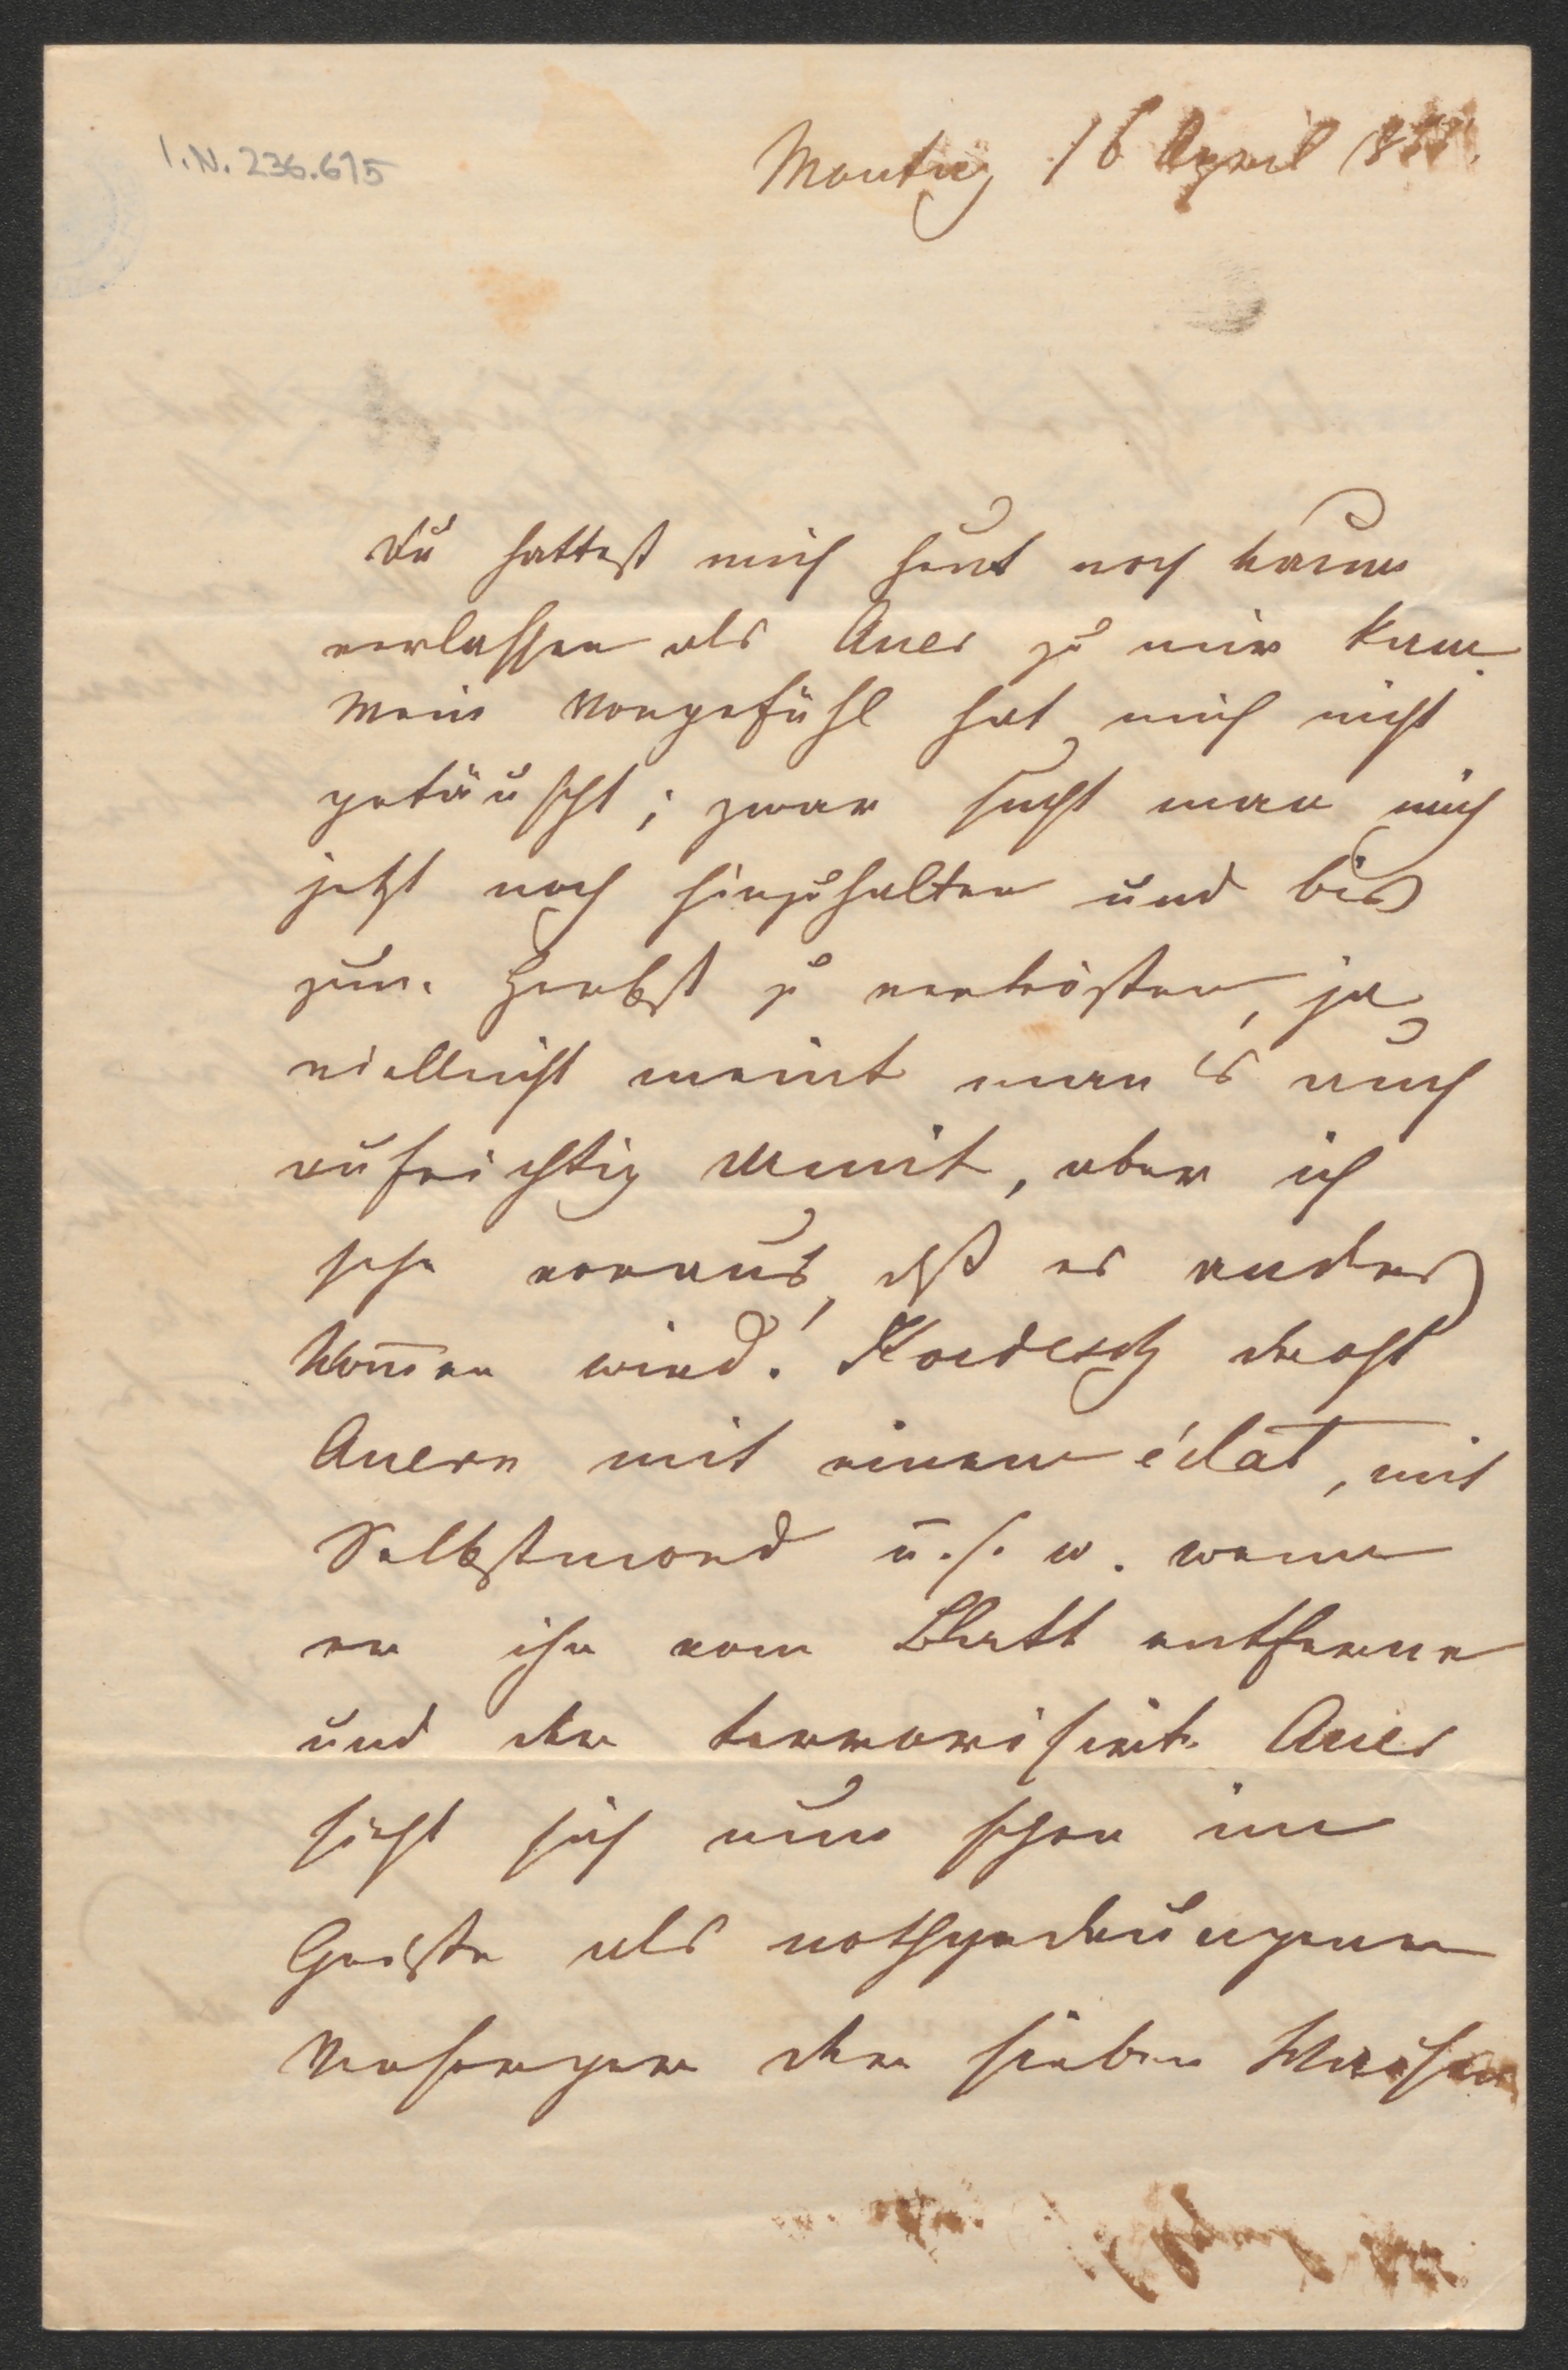 I.N. 236.615
Montag 16 April 
Du hattest mich heut noch kaum
verlassen als Auer zu mir kam.
Mein Vorgefühl hat mich nicht
getäuscht; zwar sucht man mich
jetzt noch hinzuhalten und bis
zum Herbst zu vertrösten, ja,
vielleicht meint man es auch
aufrichtig damit, aber ich
sehe voraus, dß es anders
kom̅en wird! Kordesch droht
Auern mit einem éclat, mit
Selbstmord u. s. w. wenn
er ihn vom Blatt entferne
und der terrorisirte Auer
sieht sich nun schon im
Geiste als nothgedrungenen
Versorger der sieben Waisen